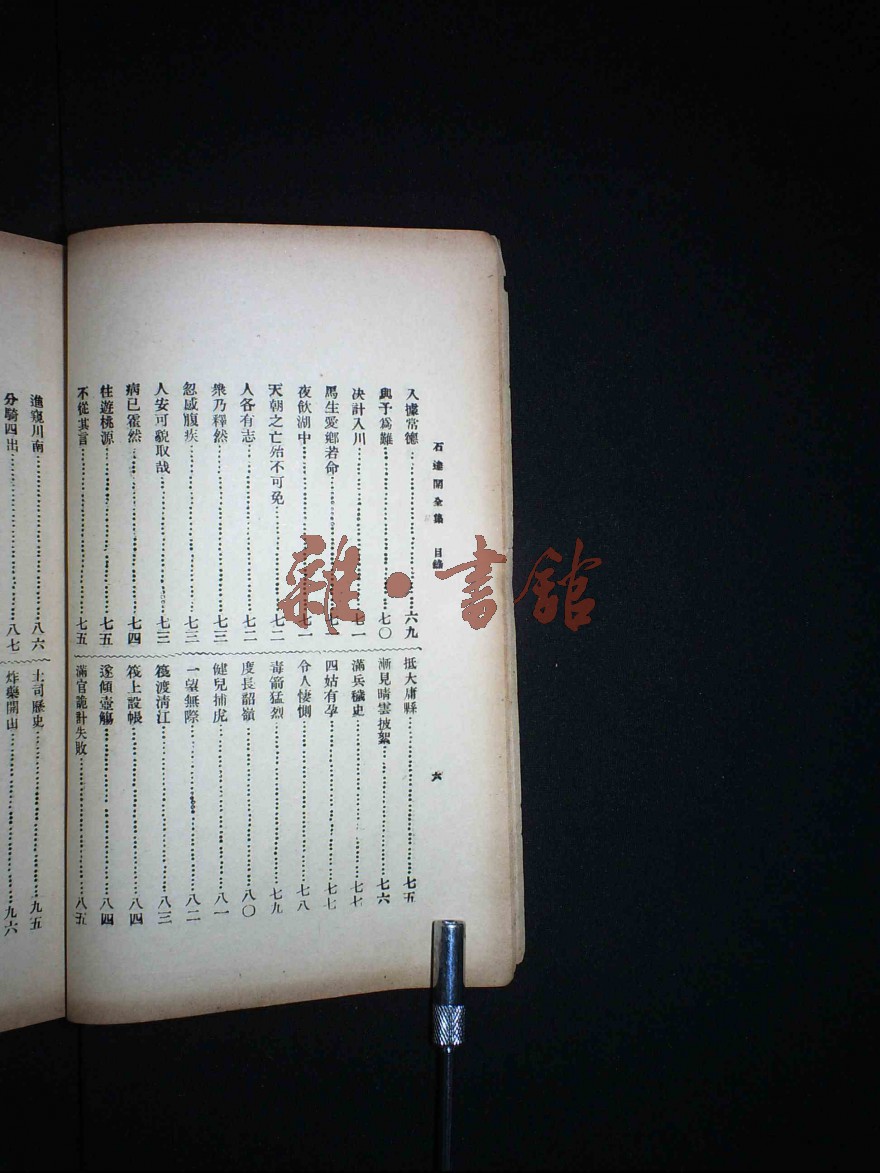 石達開全集　目錄
六
入據常德……六九
與予爲難……七〇
決計入川……七一
馬生愛鄉若命……七一
夜飲湖中……七一
天朝之亡殆不可免……七二
人各有志……七二
衆乃釋然……七三
忽感腹疾……七三
人安可貌取哉……七三
病已霍然……七四
往遊桃源……七五
不從其言……七五
抵大庸縣……七五
漸見晴雲披絮……七六
滿兵穢史……七七
四姑有孕……七七
令人悽惻……七八
毒箭猛烈……七九
度長韶嶺……八〇
健兒捕虎……八一
一望無際……八二
筏渡淸江……八三
筏上設帳……八四
遂傾壺觴……八四
滿官詭計失敗……八五
進窺川南……八六
分騎四出……八七
土司歷史……九五
炸藥開山……九六
雜·書館